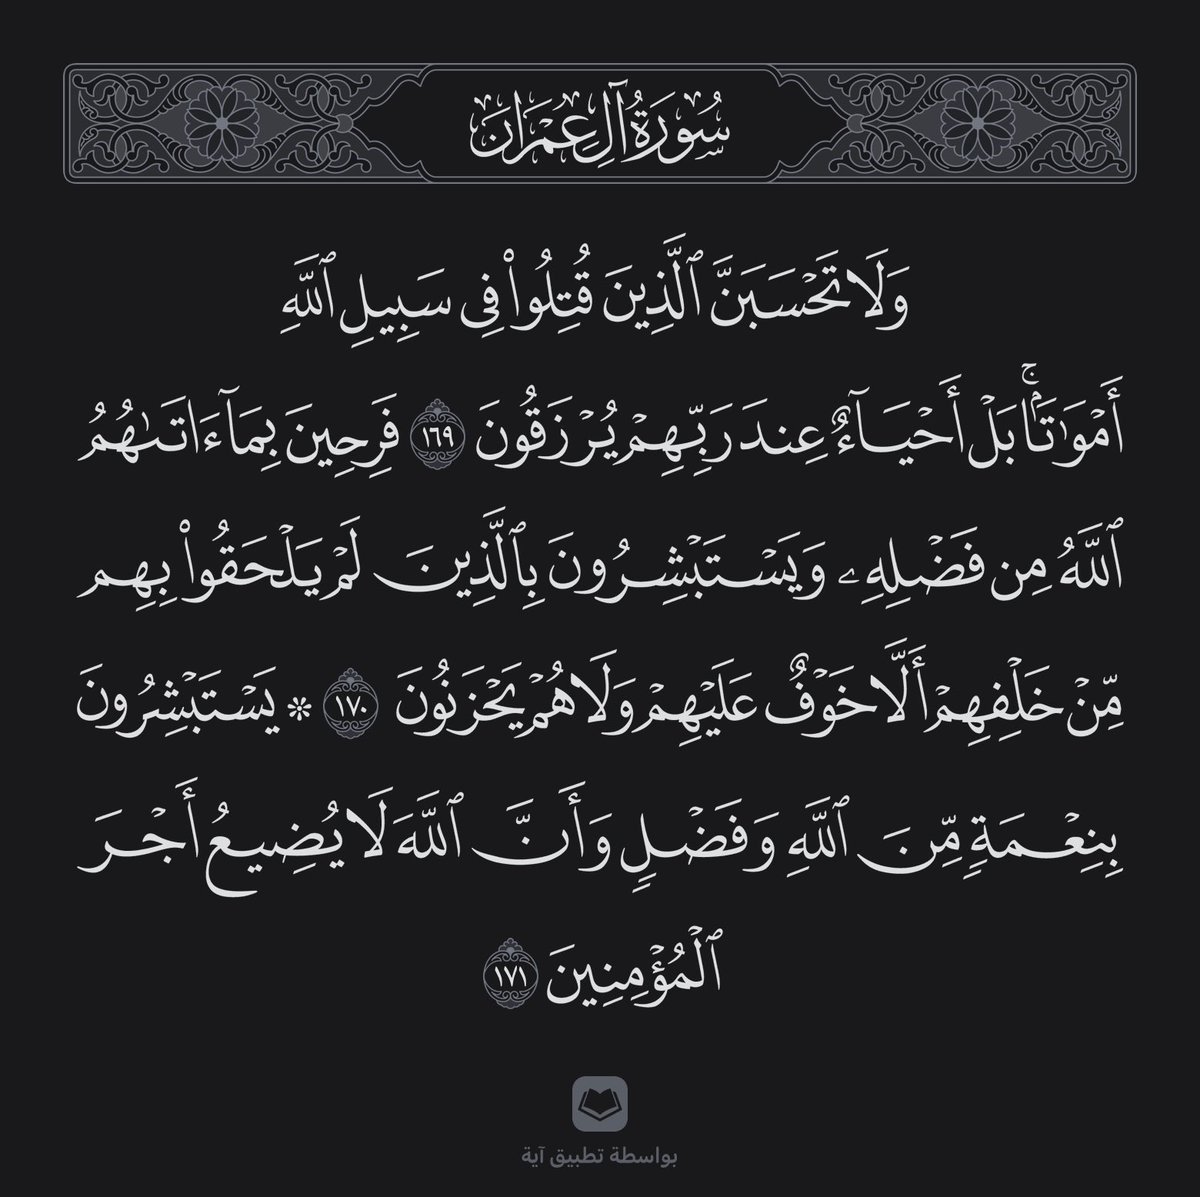 سُورَةُ آلِ عِمْرَانَ
وَلَا تَحْسَبَنَّ ٱلَّذِينَ قُتِلُوا۟ فِى سَبِيلِ ٱللَّهِ
أَمْوَٰتًۢا ۚ بَلْ أَحْيَآءٌ عِندَ رَبِّهِمْ يُرْزَقُونَ ١٦٩ فَرِحِينَ بِمَآ ءَاتَىٰهُمُ
ٱللَّهُ مِن فَضْلِهِۦ وَيَسْتَبْشِرُونَ بِٱلَّذِينَ لَمْ يَلْحَقُوا۟ بِهِم
مِّنْ خَلْفِهِمْ أَلَّا خَوْفٌ عَلَيْهِمْ وَلَا هُمْ يَحْزَنُونَ ١٧٠ ۞ يَسْتَبْشِرُونَ
بِنِعْمَةٍ مِّنَ ٱللَّهِ وَفَضْلٍ وَأَنَّ ٱللَّهَ لَا يُضِيعُ أَجْرَ
ٱلْمُؤْمِنِينَ ١٧١
بواسطة تطبيق آية